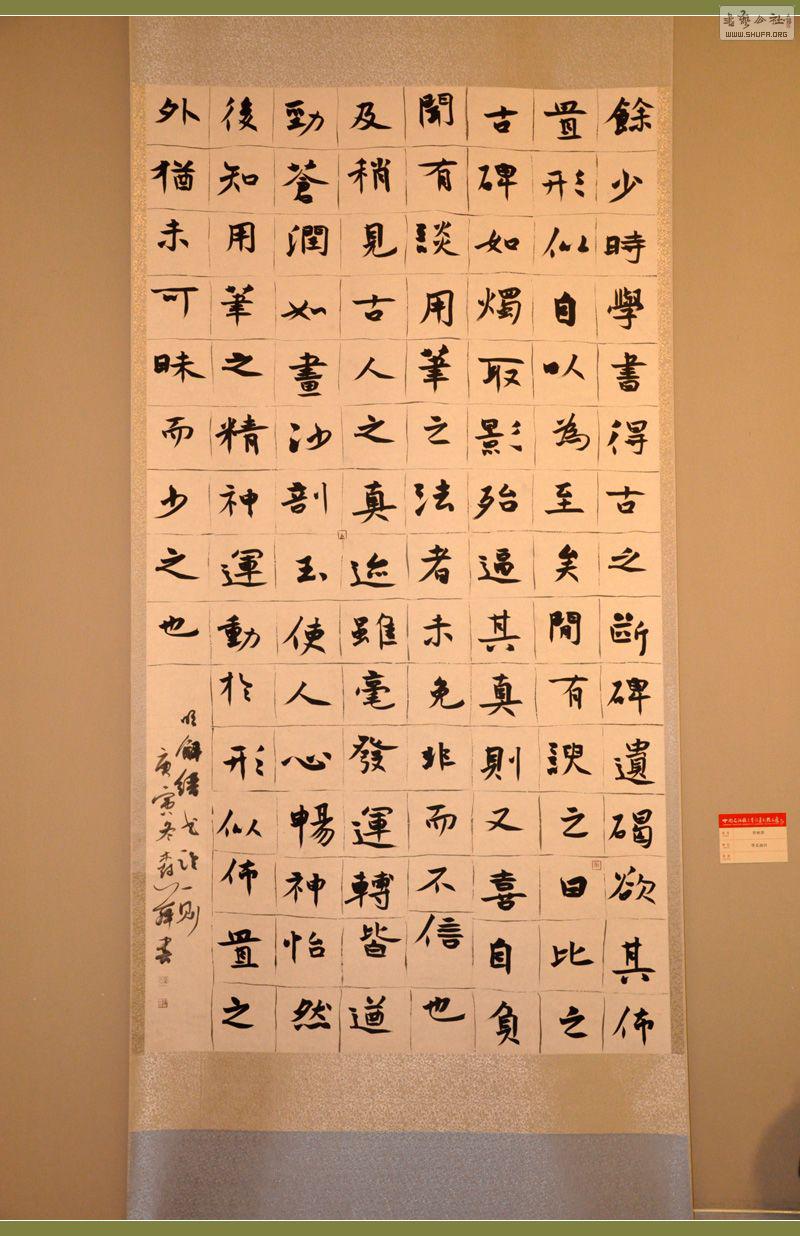 餘少時學書得古之斷碑遺碣欲其佈
置形似自以為至矣間有諛之曰比之
古碑如燭取影殆逼其真則又喜自負
聞有談用筆之法者未免非而不信也
及稍見古人之真迹雖毫發運轉皆遒
勁蒼潤如畫沙剖玉使人心暢神怡然
後知用筆之精神運動於形似佈置之
外猶未可昧而少之也
明解縉書論一則
庚寅冬森
書
書藝公社
WWW.SHUFA.ORG